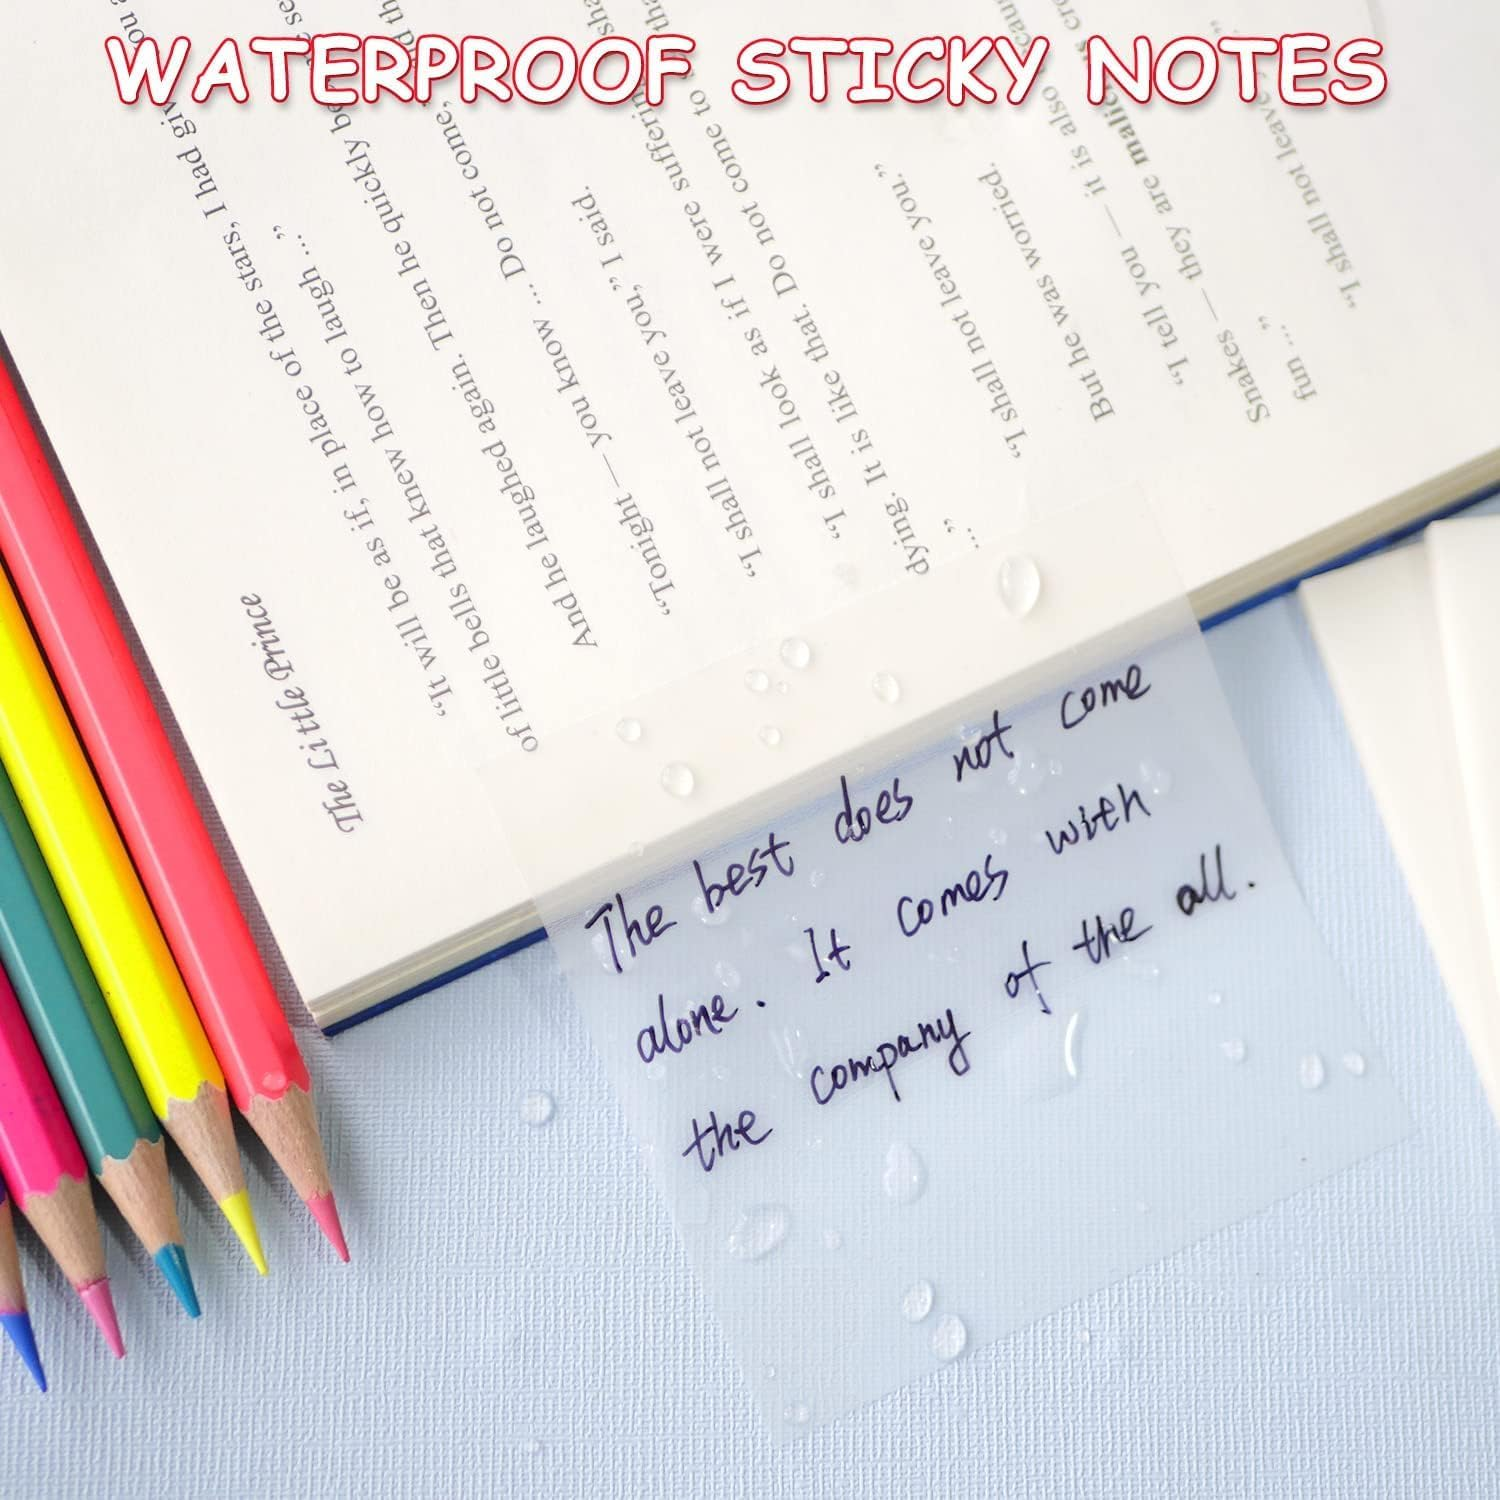 WATERPROOF STICKY NOTES
The Little Prince
“It will be as if, in place of the stars, I had giv
of little bells that knew how to laugh ...”
And he laughed again. Then he quickly be
“Tonight — you know ... Do not come,
“I shall not leave you,” I said.
“I shall look as if I were suffering
dying. It is like that. Do not come to
...”
“I shall not leave you.”
But he was worried.
“I tell you — it is also
Snakes — they are malici
fun ...”
“I shall not leave
The best does not come
alone. It comes with
the company of the all.